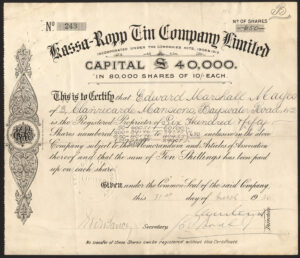 Nº OF SHARES
Nº 243
650
Kassa-Ropp Tin Company, Limited
INCORPORATED UNDER THE COMPANIES ACTS,
CAPITAL £ 40,000.
IN 80,000 SHARES OF 10/- EACH.
This is to Certify that Edward Marshall Magee
of Clanricarde Mansions, Bayswater Road
is the Registered Proprietor of Six Hundred Fifty
Shares numbered inclusive in the above
Company subject to the Memorandum and Articles of Association
thereof and that the sum of Ten Shillings has been paid
up on each share.
Given under the Common Seal of the said Company
this 31st day of
Secretary
Directors
No transfer of these Shares can be registered without this Certificate